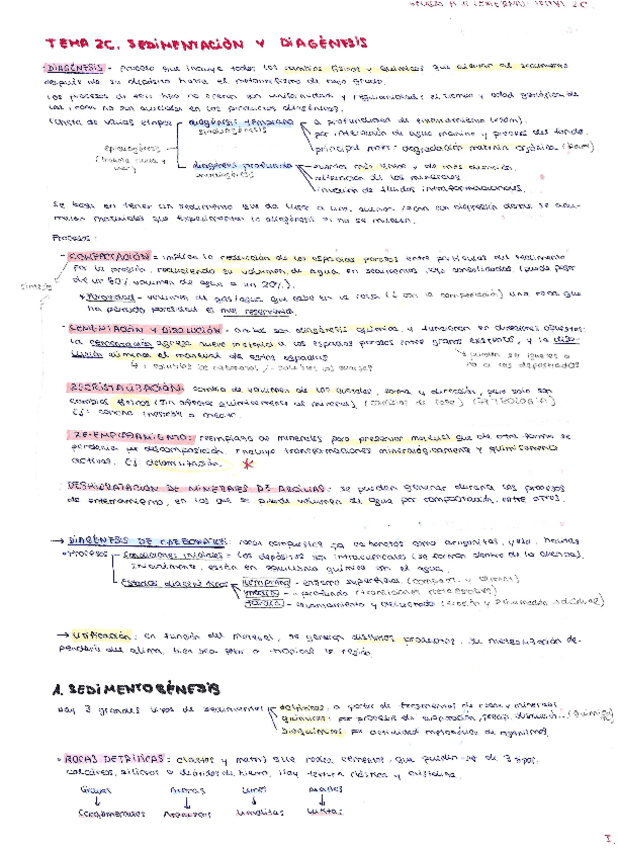 TEMA 2C. SEDIMENTACIÓN Y DIAGÉNESIS
- DIAGÉNESIS = proceso que incluye todos los cambios físicos y químicos que ocurren al sedimento
después de su depósito hasta el metamorfismo de bajo grado.
Los procesos de este tipo no operan con uniformidad y regularidad: el tiempo y edad geológica de
las rocas no son auxiliares en los productos diagénesis.
Consta de varias etapas diagénesis temprana a profundidad de enterramiento
sindiagénesis por interacción de agua marina y poros del fondo.
epidiagénesis principal motor: degradación materia orgánica
diagénesis profunda eventos más lentos y de más duración.
anadiagénesis alteración de los minerales
invasión de fluidos intraformacionales.
Se basa en tener un sedimento que da lugar a una cuenca, donde se
Procesos:
- COMPACTACIÓN = implica la reducción de los espacios porosos entre partículas del sedimento
por la presión, reduciendo su volumen de agua en sedimentos no consolidados (puede pasar
de un 80% volumen de agua a un 20%).
Porosidad - volumen de gas/agua que cabe en la roca (↓ con la compactación) una roca que
ha perdido porosidad es muy
- CEMENTACIÓN Y DISOLUCIÓN - ambas son diagénesis química, y funcionan en direcciones opuestas:
la cementación agrega nuevo material a los espacios porosos entre granos existentes, y la diso-
lución elimina el material de estos espacios
pueden ser iguales a
no a los depositados
RECRISTALIZACIÓN: cambio de volumen de los cristales, forma y dirección, pero solo son
cambios físicos (sin afectar químicamente al mineral). (cambios de fase) (PETROLOGÍA)
Ej: caliza
REEMPLAZAMIENTO: reemplazo de minerales para preservar material que de otra forma se
perdería por descomposición. Incluye transformaciones mineralógicamente y químicamente
activas. Ej dolomitización. *
DESHIDRATACIÓN DE MINERALES DE ARCILLAS: se pueden generar durante los procesos
de enterramiento, en los que se pierde volumen de agua por compactación, entre otros.
→ DIAGÉNESIS DE CARBONATOS: rocas compuestas de carbonatos como aragonitas, yeso, halitas
Procesos Condiciones iniciales = los depósitos son intracuencales (se forman dentro de la cuenca).
Inicialmente, están en equilibrio químico con el agua.
Estados diagenéticos temprana - entorno superficial
media - + profunda
tardía - levantamiento y
→ Litificación: en función del material, se generan distintos productos. Su meteorización de-
penderá del clima, bien sea frío o tropical la región.
1. SEDIMENTOGÉNESIS
Hay 3 grandes tipos de sedimentos detríticos: a partir de fragmentos de rocas y minerales
químicos: por procesos de evaporación, precip. disolución...
Bioquímicos por actividad metabólica de organismos
• ROCAS DETRÍTICAS: clastos y matriz que rodea cemento que pueden ser de 3 tipos:
calcáreos, silíceos u óxidos de hierro. Hay textura clástica y cristalina.
Gravas Arenas Limos Arcillas
↓ ↓ ↓ ↓
Conglomerados Areniscas Limolitas Lutitas
1.